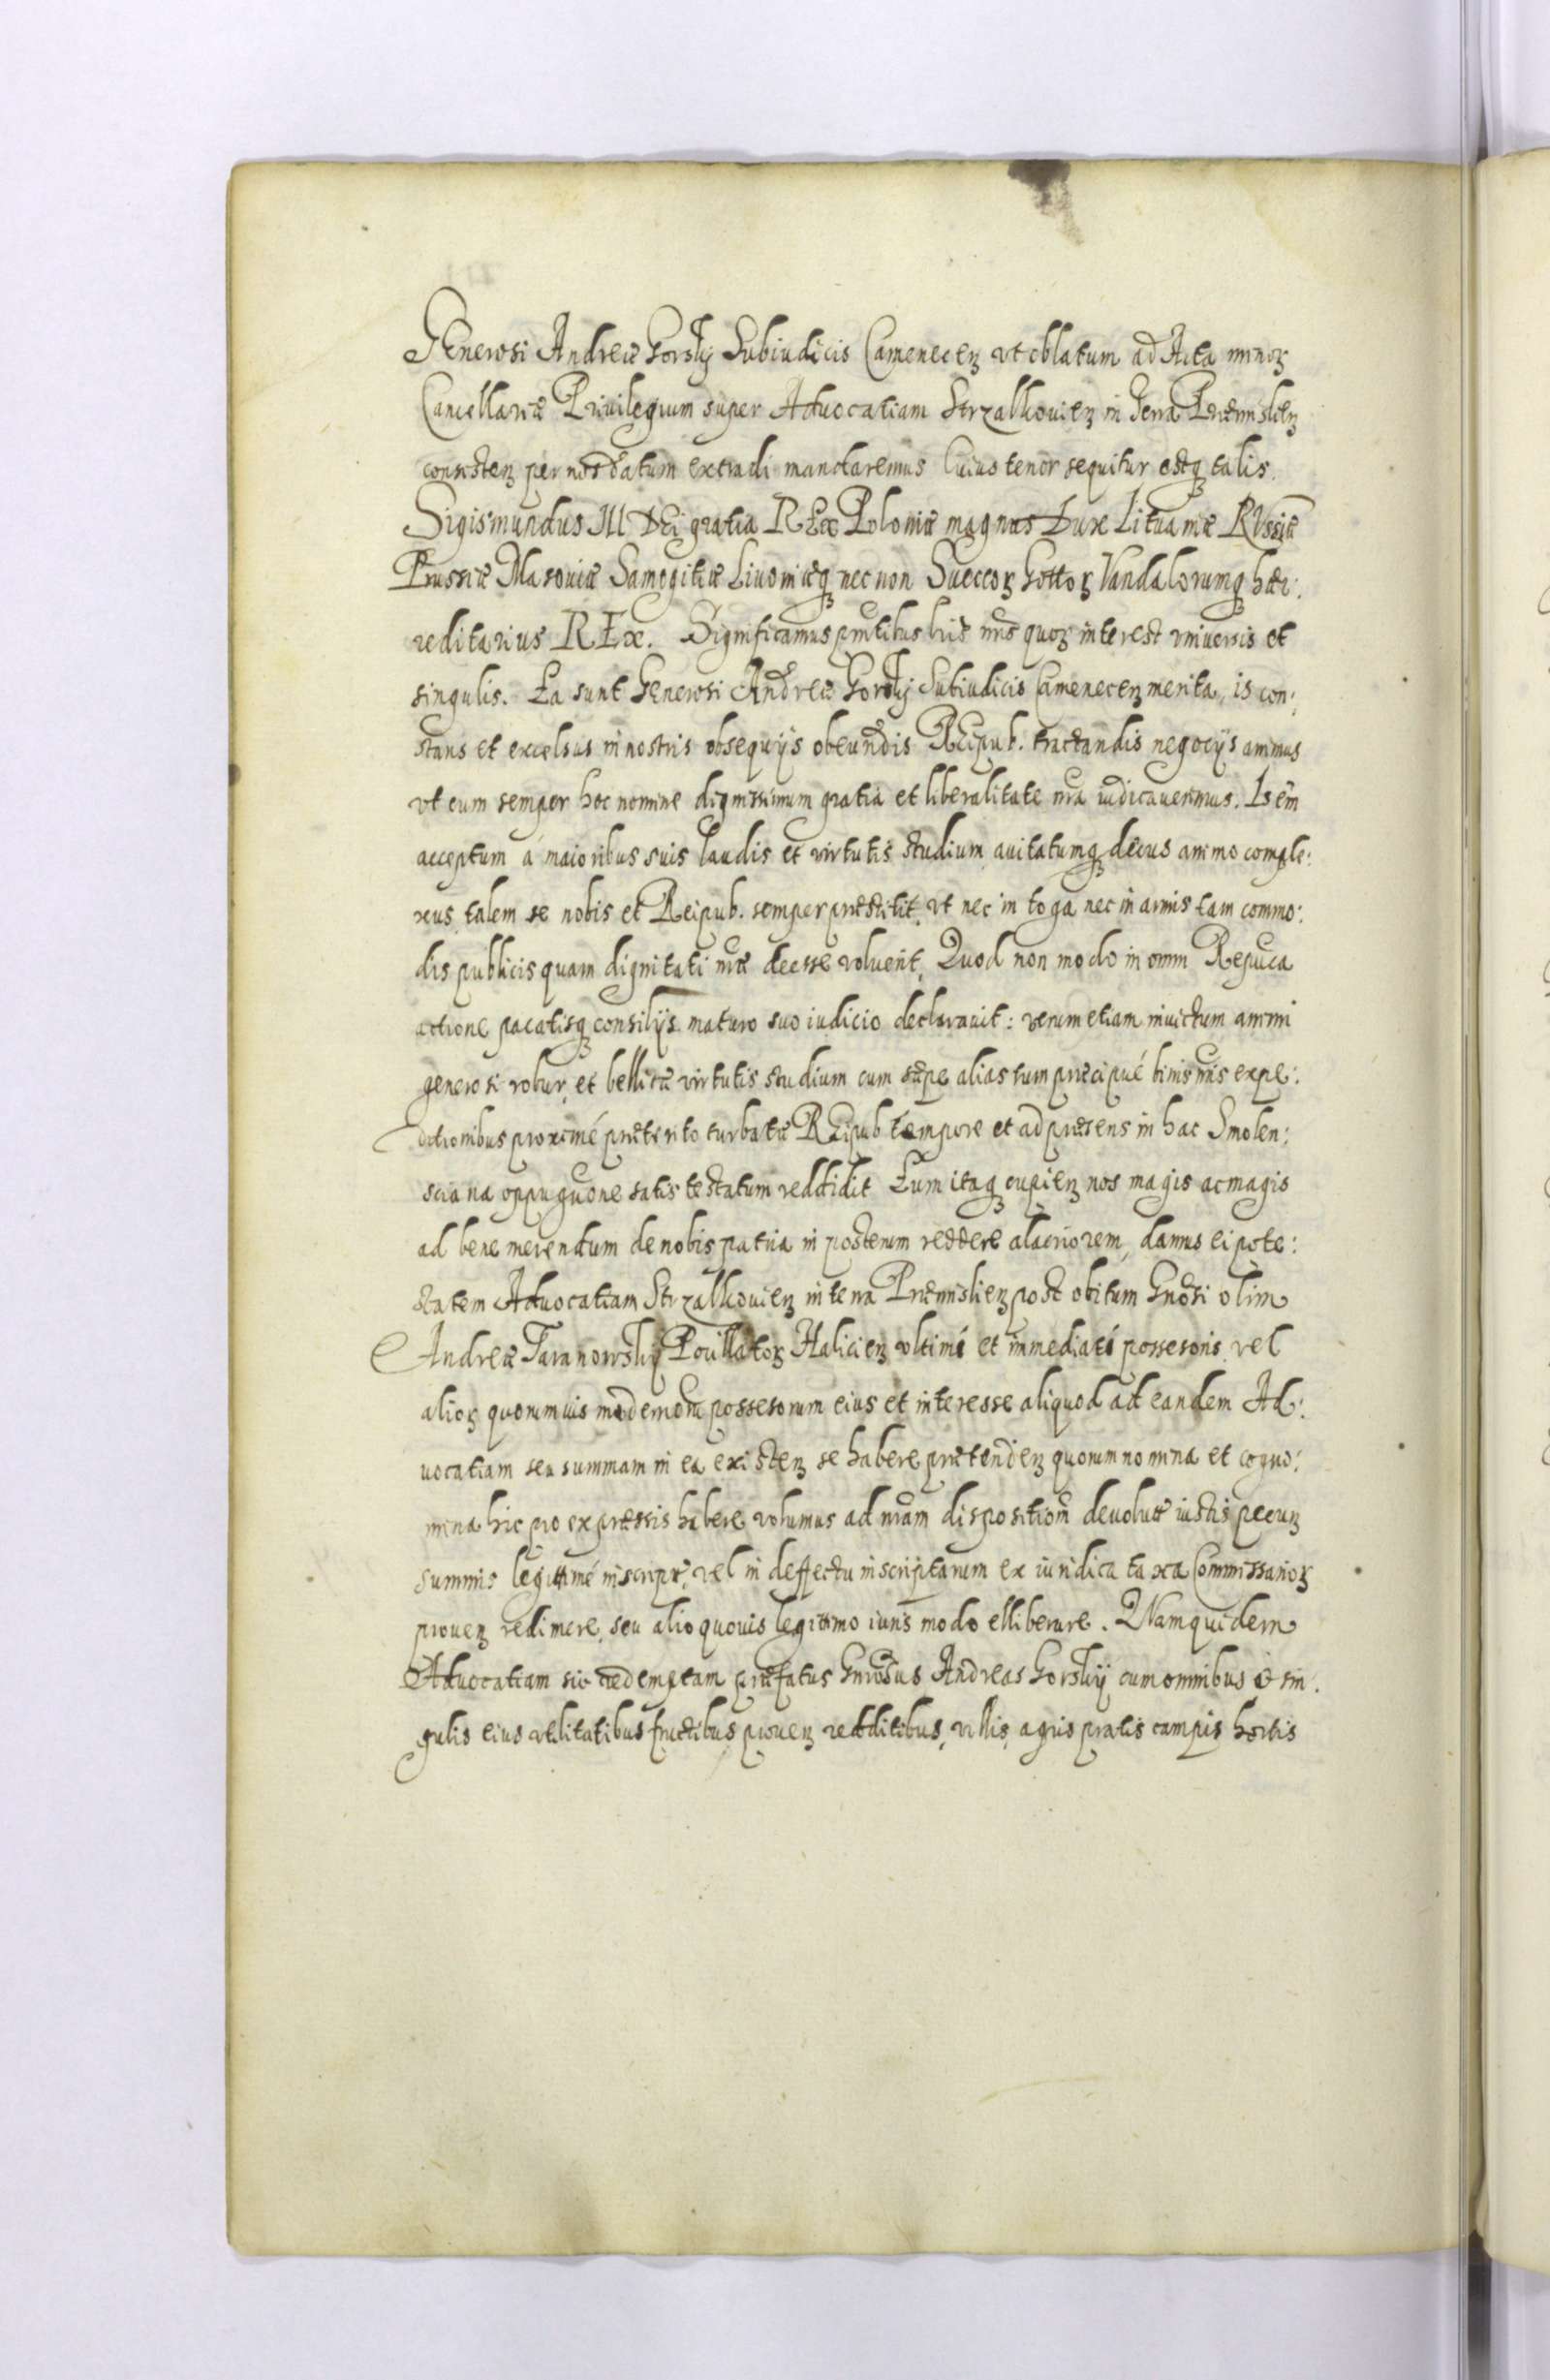 Generosi Andreæ Gorsky Subiudicis Camenecenꝫ vt oblatum ad Acta minoꝝ
Cancellariæ Priuilegium super Aduocatiam Strzalkouienꝫ in Terra Præmislienꝫ
consistenꝫ per nos datum extradi mandaremus Cuius tenor sequitur estqꝫ talis.
Sigismundus III DEi gratia REx Poloniæ magnus Dux Lituaniæ RVssiæ
Prussiæ Masouiæ Samogitiæ Liuoniæqꝫ nec non Suecoꝝ Gottoꝝ Vandalorumqꝫ hæ:
reditarius REx. Significamus pñtibus lris nris quoꝝ interest vniuersis et
singulis. Ea sunt Generosi Andreæ Gorsky Subiudicis Camenecenꝫ merita, is con:
stans et excelsus in nostris obsequijs obeundis REipub. tractandis negocijs animus
vt eum semper hoc nomine dignissimum gratia et liberalitate nra iudicauerimus. Is em̃
acceptum á maioribus suis laudis et virtutis studium auitatumqꝫ decus animo comple:
xus, talem se nobis et Reipub. semper præstitit, vt nec in toga nec in armis tam commo:
dis publicis quam dignitati nræ deesse voluerit, Quod non modo in omni Repuca
actione pacatisqꝫ consilijs maturo suo iudicio declarauit: verum etiam inuictum animi
generosi robur, et bellicæ virtutis studium cum sæpe alias tum præcipué binis nris expe:
ditionibus proximé præterito turbatæ REipub tempore et ad præsens in hac Smolen:
sciana oppugnone satis testatum reddidit Eum itaqꝫ cupienꝫ nos magis ac magis
ad bene merendum de nobis patria in posterum reddere alacriorem, damus ei pote:
statem Aduocatiam Strzalkouienꝫ in terra Præmislienꝫ post obitum Gnosi olim
Andreæ Taranowsky Pocillatoꝝ Halicienꝫ vltimé et immediaté possesoris vel
alioꝝ quorumuis modernoru possesorum eius et interesse aliquod ad eandem Ad:
uocatiam seu summam in ea existenꝫ se habere prætendenꝫ quorum nomina et cogno:
mina hic pro expressis habere volumus ad nram dispositiom deuolutæ iustis pecunꝫ
summis legittimé inscript, vel in deffectu inscriptarum ex iuridica taxa Commissarioꝝ
prouenꝫ redimere, seu alio quouis legittimo iuris modo elliberare. QNam quidem
Aduocatiam sic redemptam præfatus Gnrosus Andreas Gorsky cum omnibus & sin:
gulis eius vtilitatibus fructibus prouenꝫ redditibus, villis, agris pratis campis hortis